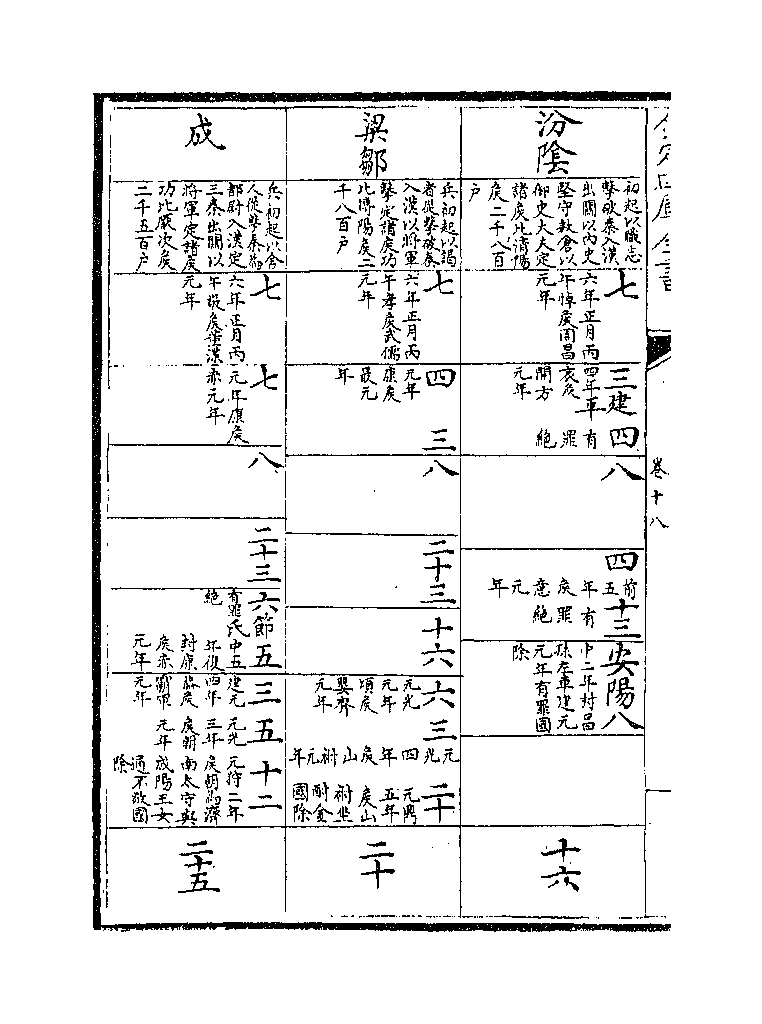 欽定四庫全書
卷十八
汾陰
初起以職志
擊破秦入漢
出關以内史
堅守敖倉以
御史大夫定
諸侯比清陽
侯二千八百
戶
七
六年正月丙
午悼侯周昌
元年
三建平
四年
哀侯
開方
元年
四
有
罪
絶
八
四
前五
年
侯
意
元
年
十三
有
罪
絶
安陽八
中二年封昌
孫左車建元
元年有罪國
除
十六
梁鄒
兵初起以謁
者從擊破秦
入漢以將軍
擊定諸侯功
比博陽侯二
千八百戶
七
六年正月丙
午孝侯武儒
元年
四
元年
康侯
最元
年
三
八
二十三
十六
六
元光
元年
頃侯
嬰齊
元年
三
元光四年侯山柎元年
二十
元鼎
五年
侯山
柎坐
酎金
國除
二十
成
兵初起以舍
人從擊秦為
都尉入漢定
三秦出關以
將軍定諸侯
功比厭次侯
二千五百戶
七
六年正月丙
午敬侯董渫
元年
七
元年康侯
赤元年
八
二十三
六
有罪
絶
節氏五
中五
年復
封康
侯赤
元年
三
建元
四年
恭侯
霸軍
元年
五
元光
三年
侯朝
元年
十二
元狩三年
侯朝為濟
南太守與
城陽王女
通不敬國
除
二十五